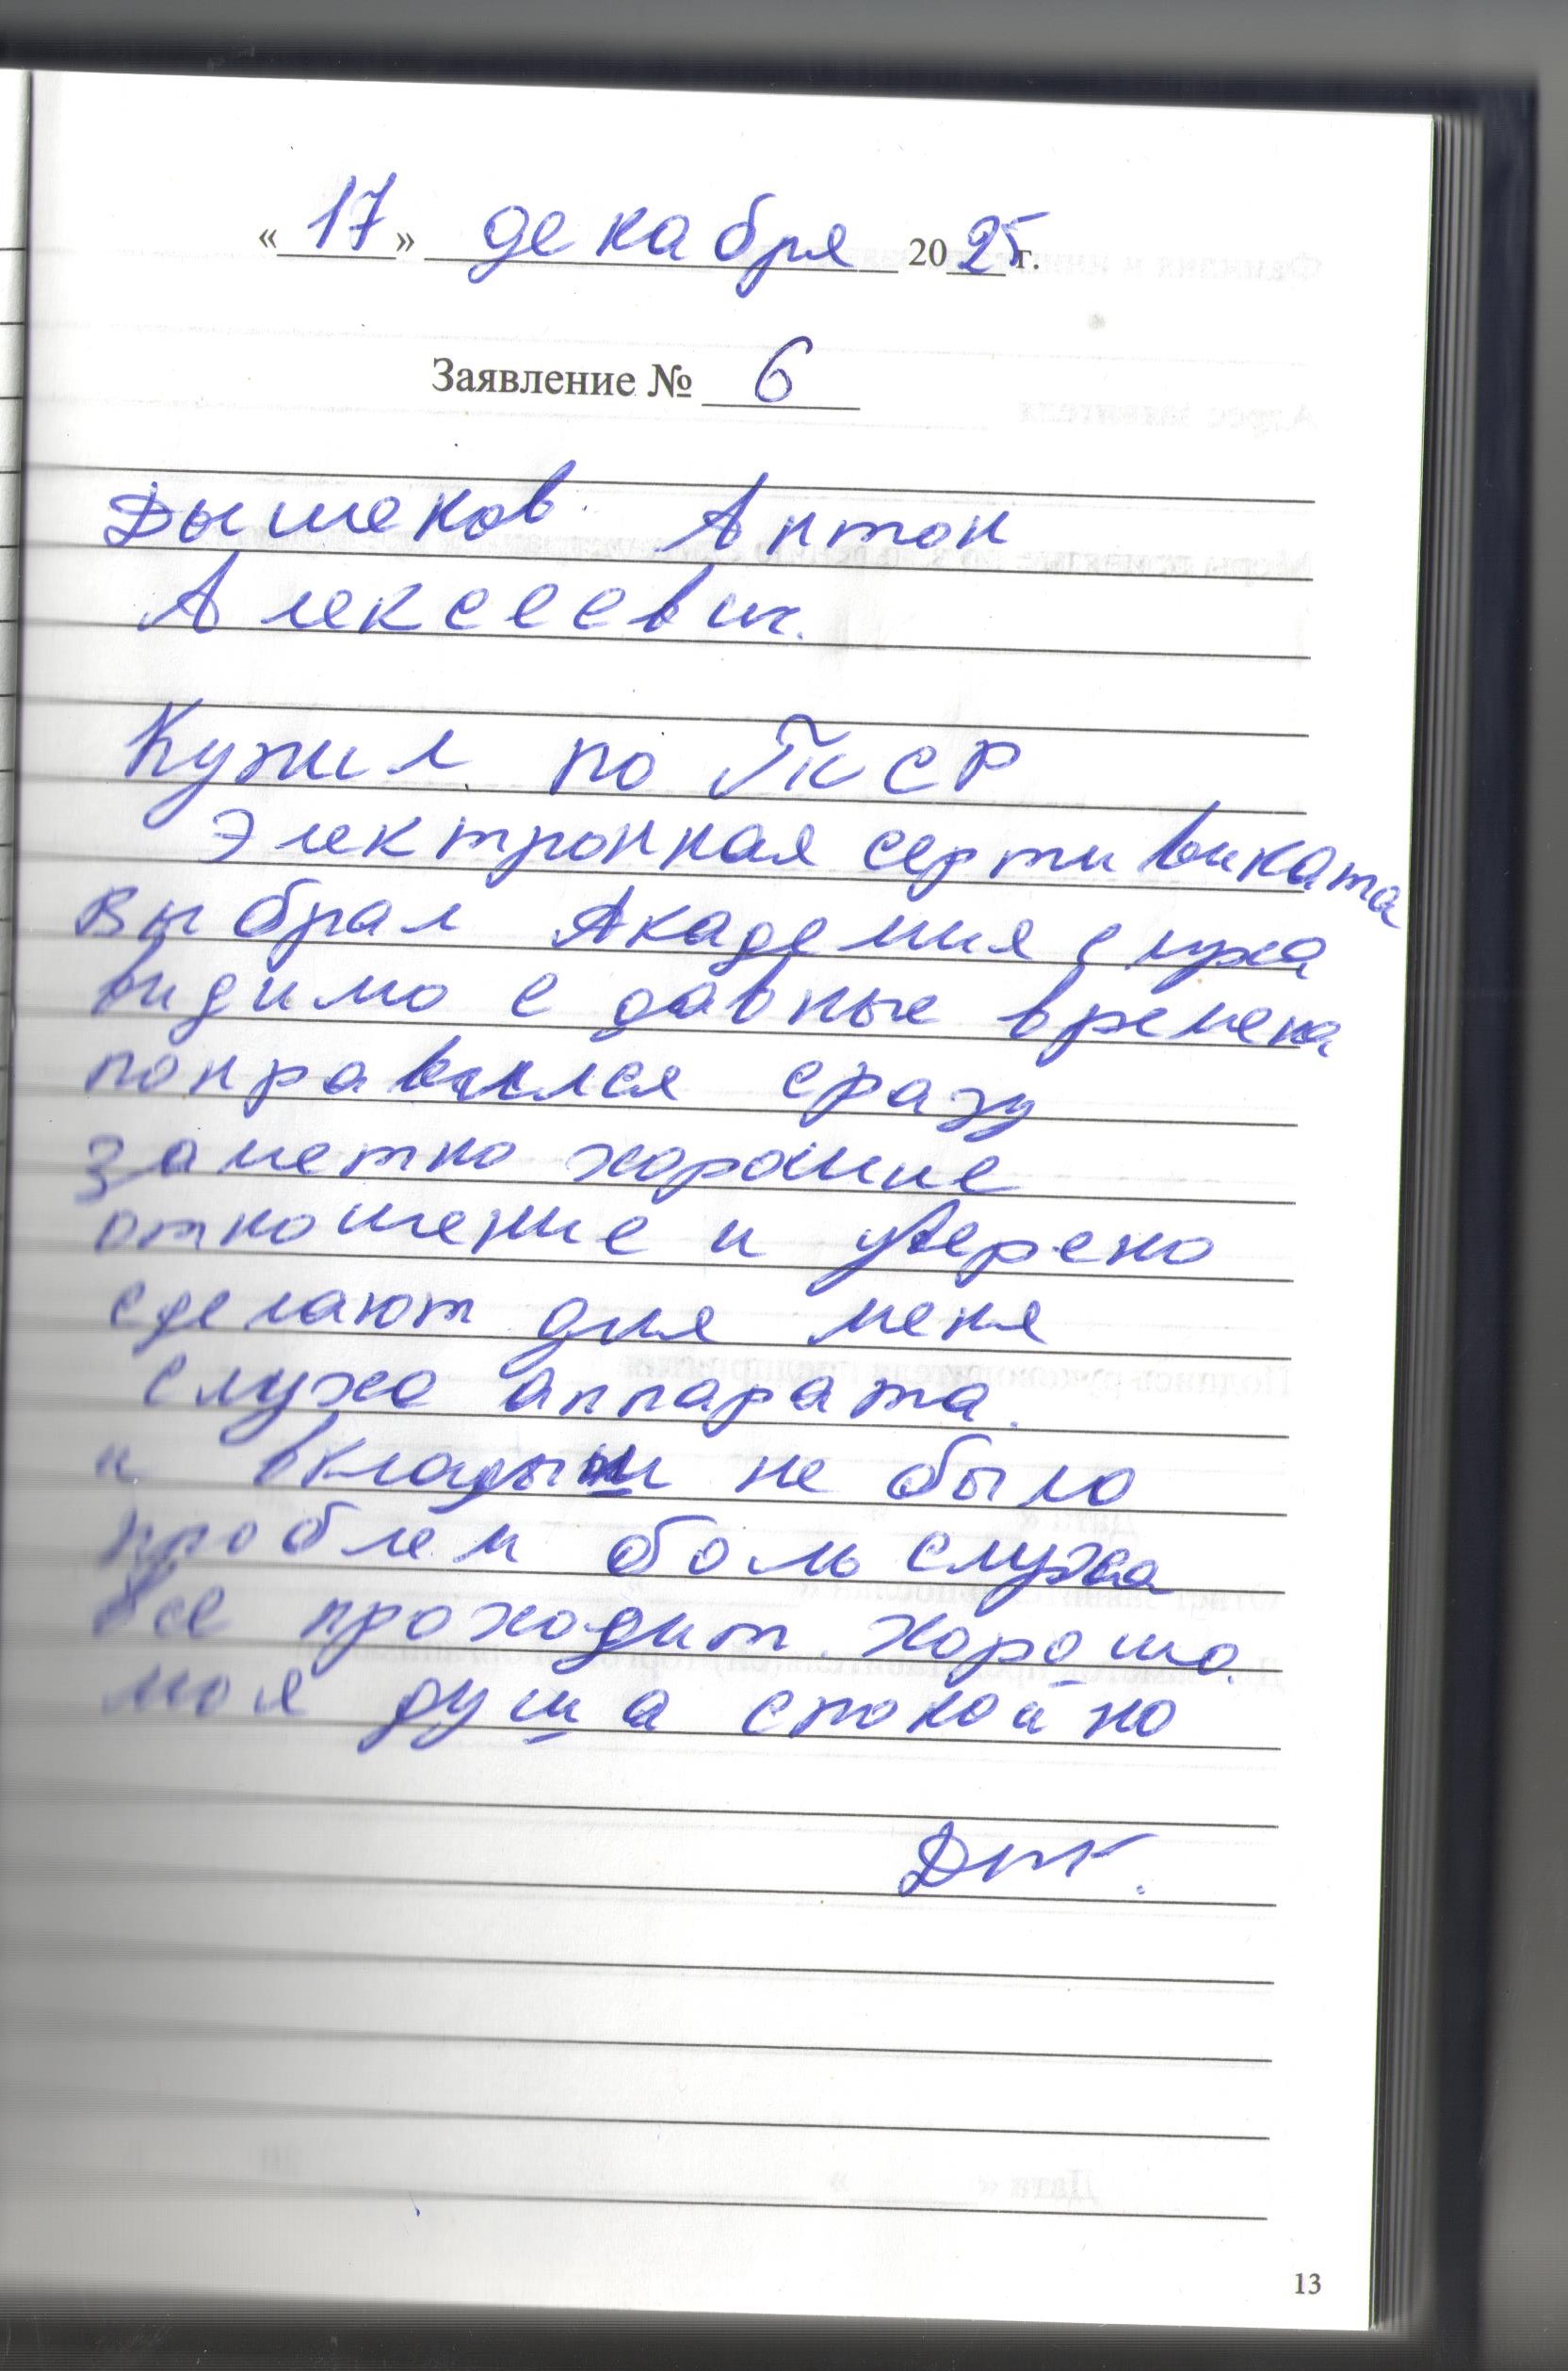 « 17 » декабря 2025 г.
Заявление № 6
Дышеков Антон
Алексеевич.
Купил по ТСР
Электронная сертивиката
Выбрал Академия слуха
видимо с давные времена
понравился сразу
заметно хорошие
отношение и уверено
сделают для меня
слухо аппарата.
и вкладыши не было
проблем боль слуха
все проходит хорошо.
моя душа спокойно
13